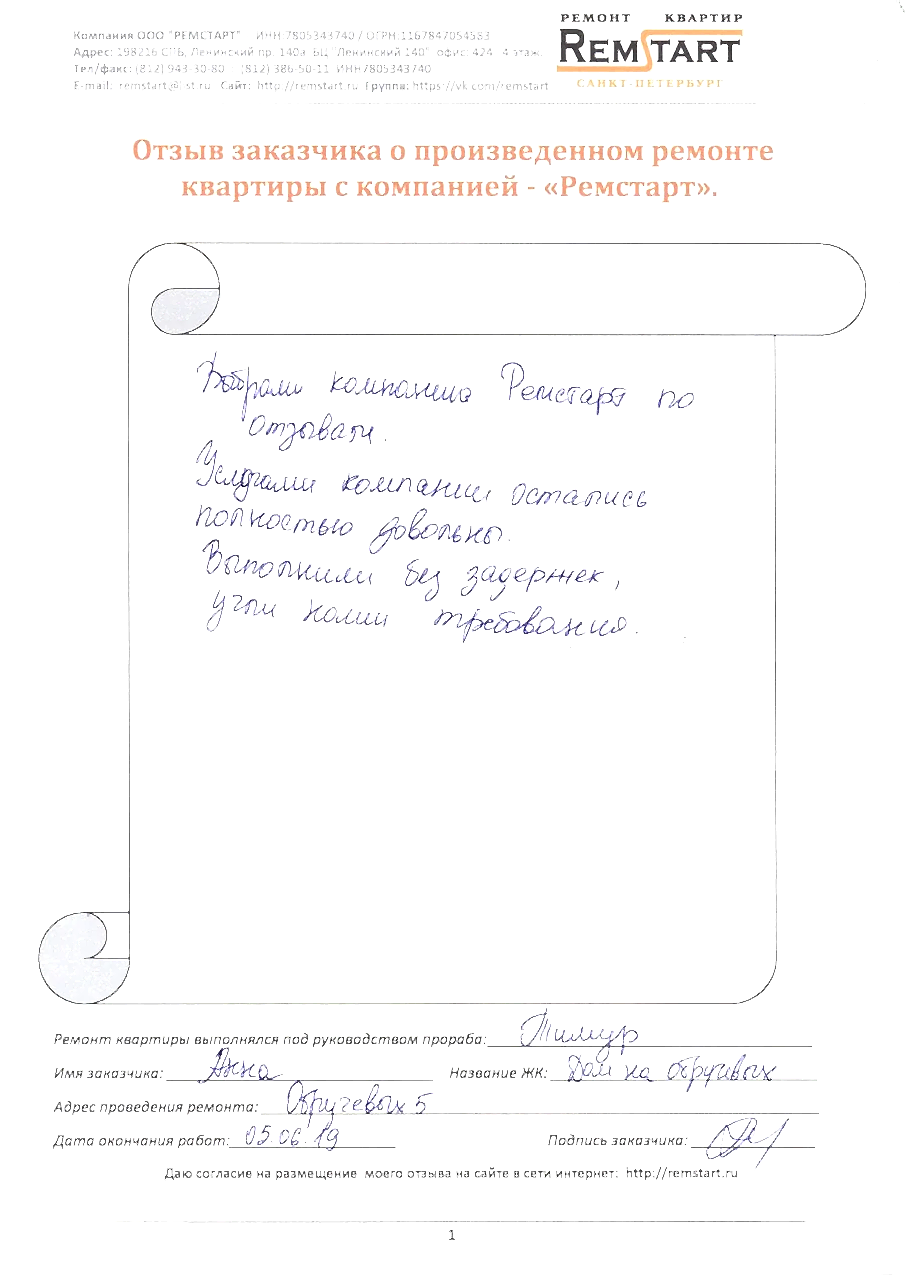 Компания ООО "РЕМСТАРТ" ИНН:7805343740 / ОГРН:1167847054583
РЕМОНТ КВАРТИР
REMSTART
САНКТ-ПЕТЕРБУРГ
Адрес: 198216 СПБ, Ленинский пр. 140а БЦ "Ленинский 140" офис: 424 4 этаж.
Тел/факс: (812) 943-30-80 (812) 386-50-11 ИНН7805343740
E-mail: Сайт: http://remstart.ru Группа: https://vk.com/remstart
Отзыв заказчика о произведенном ремонте
квартиры с компанией - «Ремстарт».
Выбрали компанию Ремстарт по
отзывам.
Услугами компании остались
полностью довольны.
Выполнили без задержек,
учли наши требования.
Ремонт квартиры выполнялся под руководством прораба: Тимур
Имя заказчика: Анна Название ЖК: Дом на обручевых
Адрес проведения ремонта: Обручевых 5
Дата окончания работ: 05.06.19 Подпись заказчика:
Даю согласие на размещение моего отзыва на сайте в сети интернет: http://remstart.ru
1